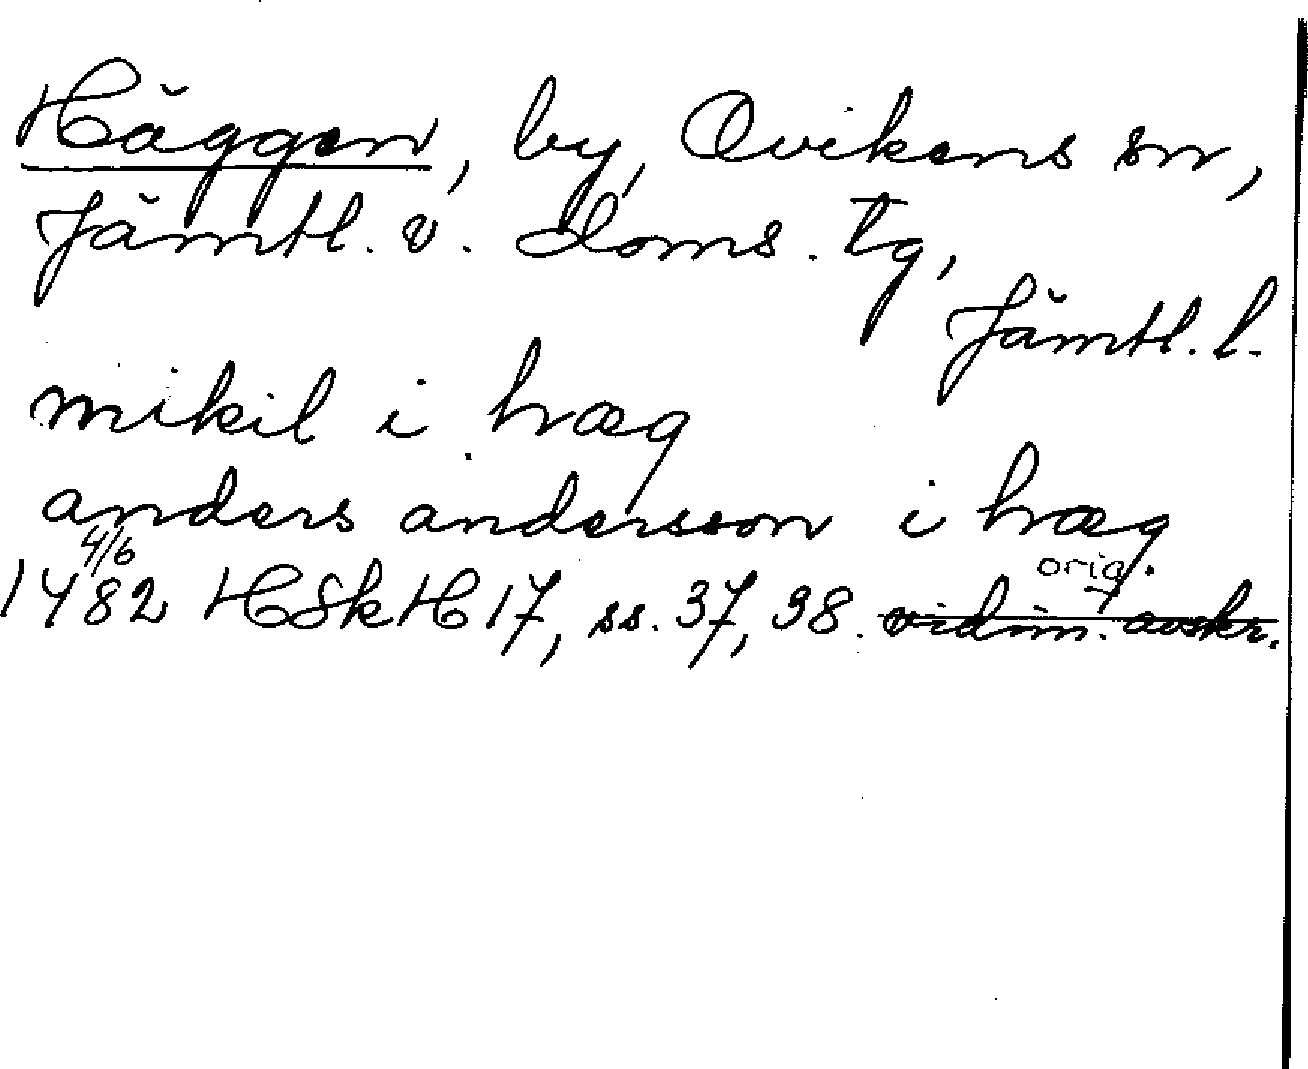 Häggen, by, Ovikens sn,
Jämtl. v. doms. tg,
Jämtl. l.
mikil i hæg
anders andersson i hæg
4/6 orig.
1482 HSkH 17, ss. 37, 38. vidim. avskr.